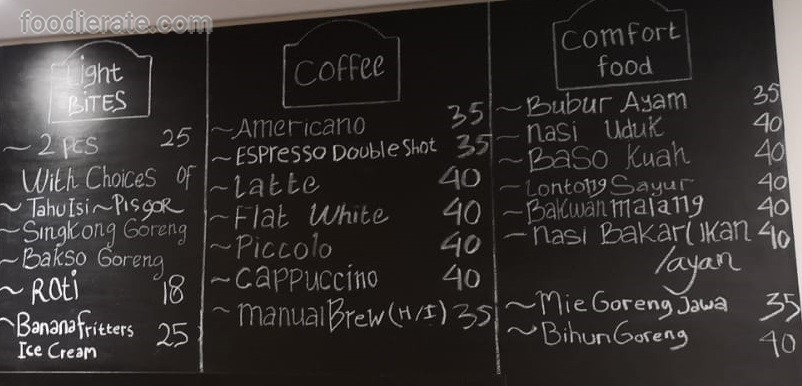 foodierate.com
Light
BITES
~ 2 PCS 25
With Choices Of
~ Tahu Isi ~ Pisgor
~ Singkong Goreng
~ Bakso Goreng
~ Roti 18
~ Banana fritters
Ice Cream 25
Coffee
~ Americano 35
~ ESPresso Double Shot 35
~ Latte 40
~ Flat White 40
~ Piccolo 40
~ Cappuccino 40
~ manual Brew (H/I) 35
Comfort
food
~ Bubur Ayam 35
~ nasi Uduk 40
~ Baso Kuah 40
~ Lontong Sayur 40
~ Bakwan malang 40
~ nasi Bakar (Ikan 40
layan
~ Mie Goreng Jawa 35
~ Bihun Goreng 40